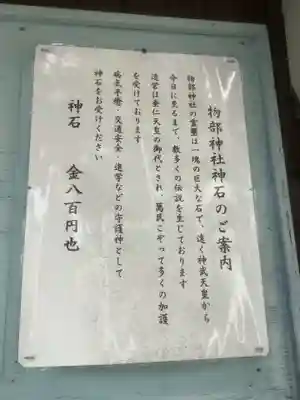 物部神社神石のご案内
物部神社の霊璽は一塊の巨大な石で、遠く神武天皇から
今日に至るまで、数多くの伝説を生じております
造営は垂仁天皇の御代とされ、萬民こぞって多くの加護
を受けております
病気平癒・交通安全・進学などの守護神として
神石をお受けください
神石　金八百円也